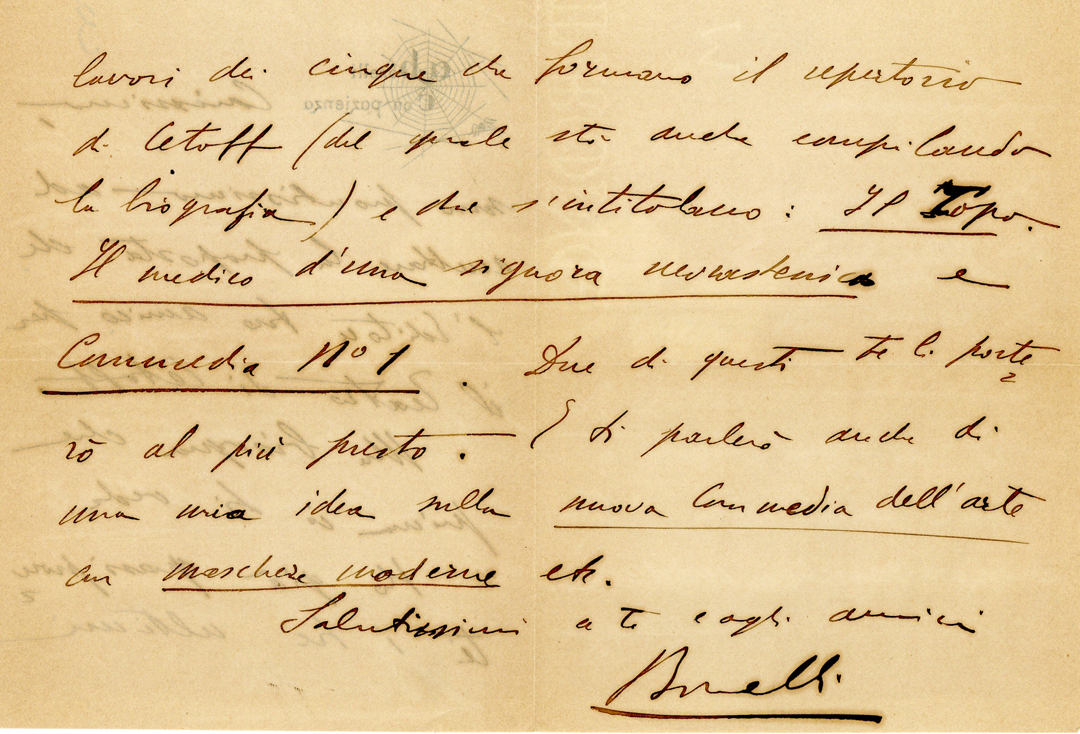 lavori dei cinque che formano il repertorio
di Cetoff (del quale sta anche compilando
la biografia) e che s'intitolano: Il Topo.
Il medico d'una signora nevrastenica e
Commedia No 1. Due di questi te li porte
rò al più presto. E ti parlerò anche di
una mia idea sulla nuova Commedia dell'arte
con maschere moderne etc.
Salutissimi a te e agli amici
Bonelli
Con pazienza